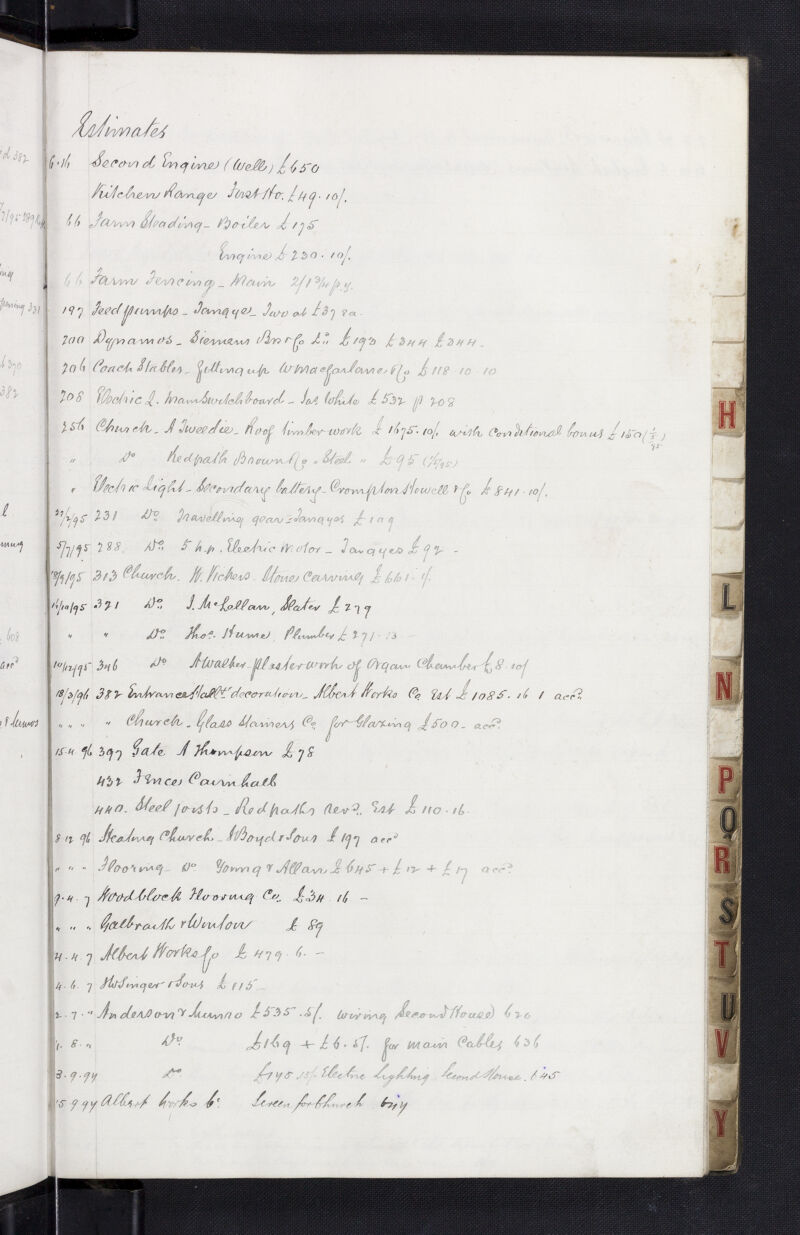 Estimates
6.16 Second Engine (Well) £650
Kitchen Range First Ho. £49.10/.
66 Farm Steading - Boiler £175
Engine £230.10/.
66 Farm Fencing - Main 2/1¾ p.y.
197 Feed pumps - Tangyes - Two at £37 ea.
200 Dynamos - Siemens Bros & Co Ld. £193 £344 £344.
206 Coach Stables - fitting up W Macfarlane & Co £118.10.10
208 Electric L. Main Switchboard - Jas White £532 p 208
256 Church - A Tweedie - Roof timber work £1675.10/. with conditional bonus £150
" Do Redpath Brown & Co " Steel " £95
" Electric Light - Secondary battery - Crompton Howell & Co £841.10/.
27/2/95 231 Do Travelling gear - Tangyes £109
5/7/95 288. Do. 5 h.p. Electric Motor - Tangyes £92 -
313 Church. W. Vickers. Stone Carving £661.
16/10/95 321 Do. J. McLellan, Slater £279
" " Do Thos. Hume, Plumber £271.13 -
10/12/95 346 Do A Walker - plasterwork of Organ Chamber £8.10/
18/3/96 382 Entrance Hall decoration - Albert Works Co Est £1085.16 1 accd.
" " " " Church - Glass Stainers Co for Glazing £500 - accd.
15.4 96 397 Gate A Thompson £78
432 Fences Cairnhall
440. Steel joists - Redpaths revd. Est £110.16.
8 12 96 Heating Church - Boyd & Sons £197 accd
" " " Flooring - Do Young & Allan £645 + £12 + £17 accd.
9.4.7 Woodblock Flooring Co. £34.16 -
" " " Galbraith & Winton £89
21.4.7 Albert Works Co £479.6. -
4.6.7 Singer & Sons £115 -
2.7." Anderson & Munro £535.5/. wiring Second House 620
8. " Do £169 + £6.5/. for main Cables 636
3.9.97 Do £145.15/. Electric Lighting Second House. 645
15.9.97 Albert Works Co. Screen for Church
382
331
370
382
608
accd
H
L
N
P
Q
R
S
T
U
V
Y